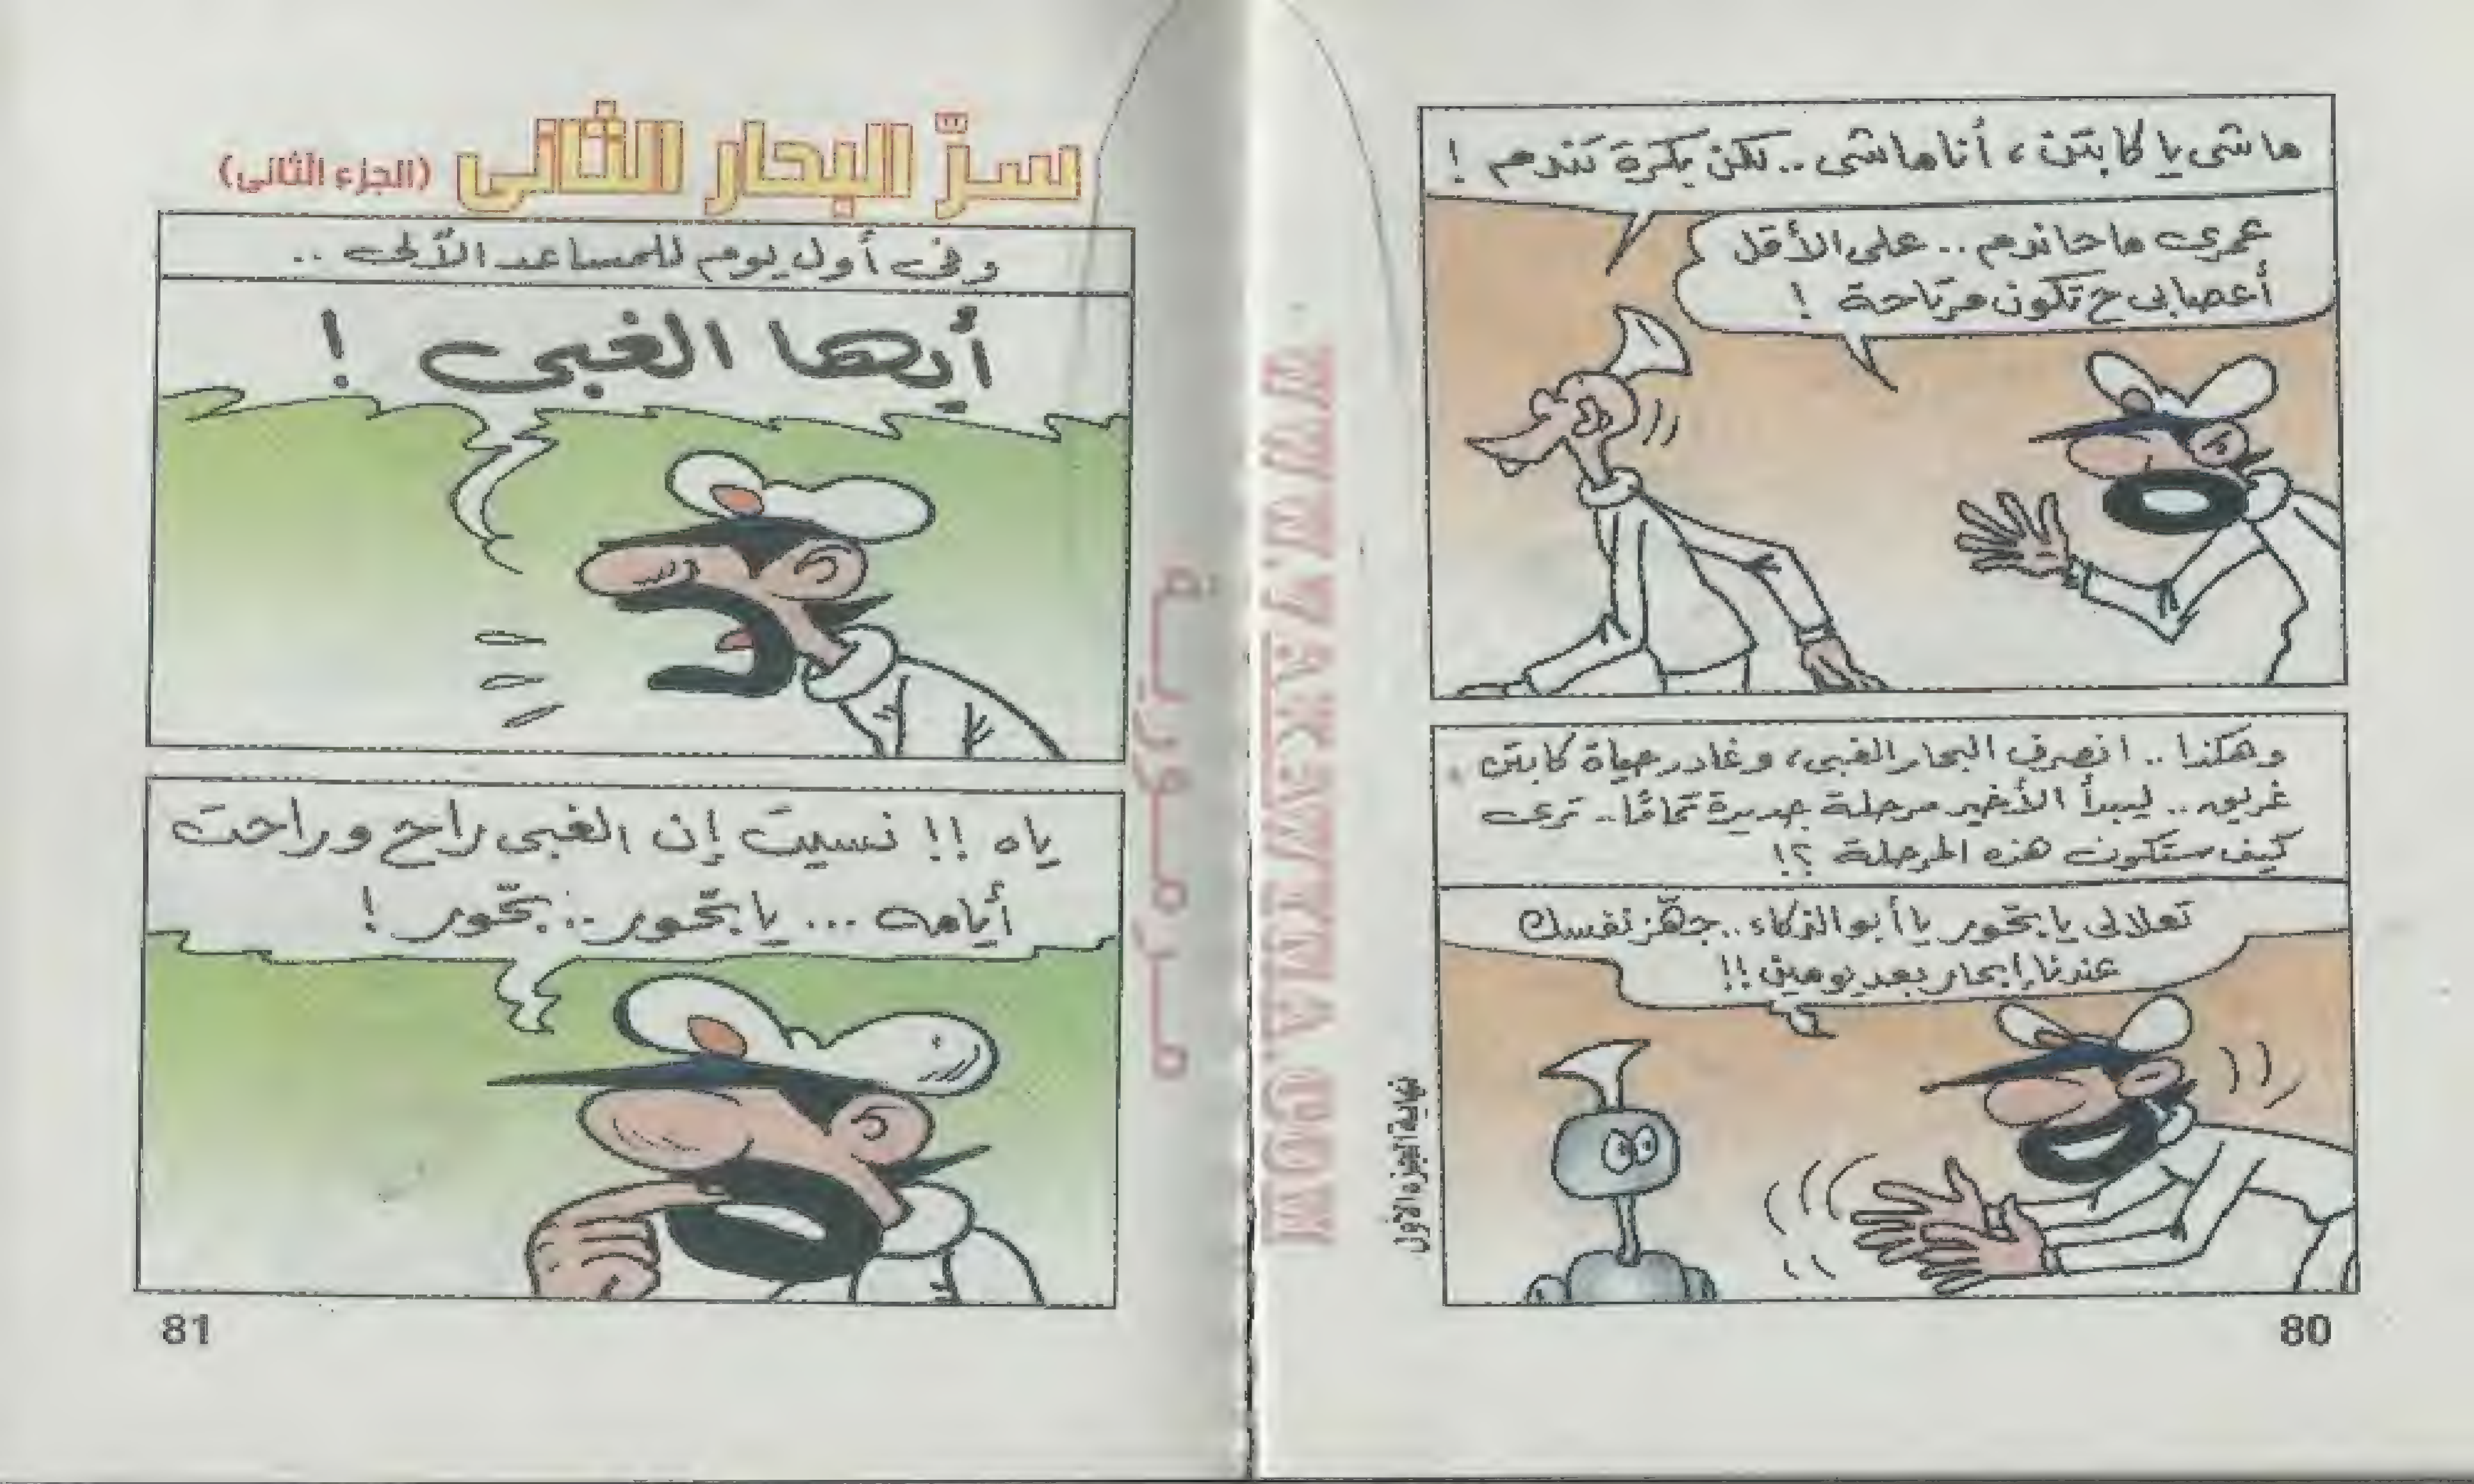 ماشى يا كابتن، أنا ماشى.. لكن بكرة تندم !
عمرى ما حاندم.. على الأقل
أعصابى ح تكون مرتاحة !
وهكذا.. انصرف البحار الغبى، وغادر حياة كابتن
غريور.. ليبدأ الأخير مرحلة جديدة تمامًا.. ترى
كيف ستكون هذه المرحلة ؟!
تعلالى يا بحّور يا أبو الذكاء.. جهّز نفسك
عندنا إبحار بعد يومين !!
نهاية الجزء الأول
80
سرّ البحار الثانى (الجزء الثانى)
وفى أول يوم للمساعد الآلى ..
أيها الغبى !
ياه !! نسيت إن الغبى راح وراحت
أيامه ... يا بحّور .. بحّور !
81